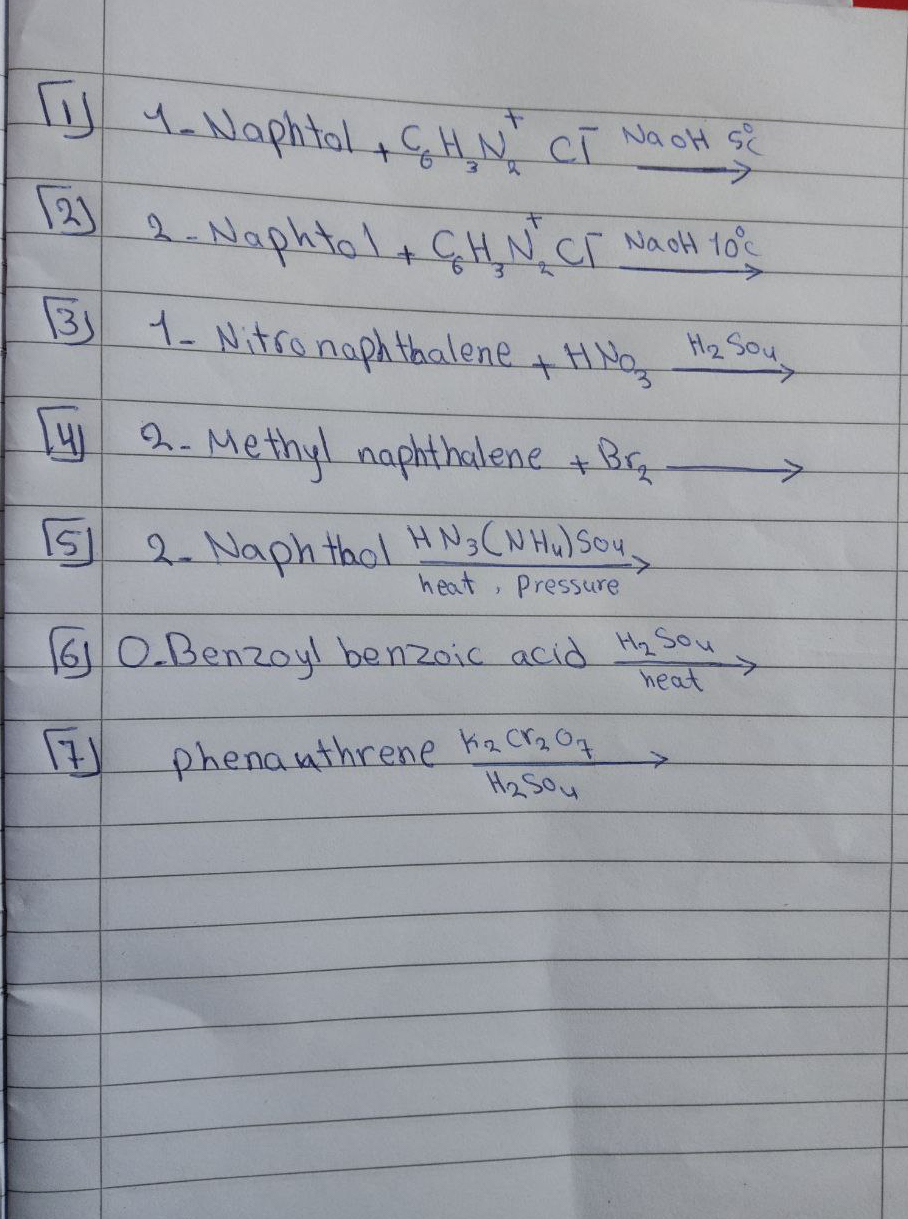 [1] 1-Naphtol + C6H3N2+ Cl- NaOH 5°C →
[2] 2-Naphtol + C6H3N2+ Cl- NaOH 10°C →
[3] 1-Nitronaphthalene + HNO3 H2SO4 →
[4] 2-Methyl naphthalene + Br2 →
[5] 2-Naphthol HN3(NH4)SO4 → heat, pressure
[6] O.Benzoyl benzoic acid H2SO4 → heat
[7] phenanthrene K2Cr2O7 → H2SO4